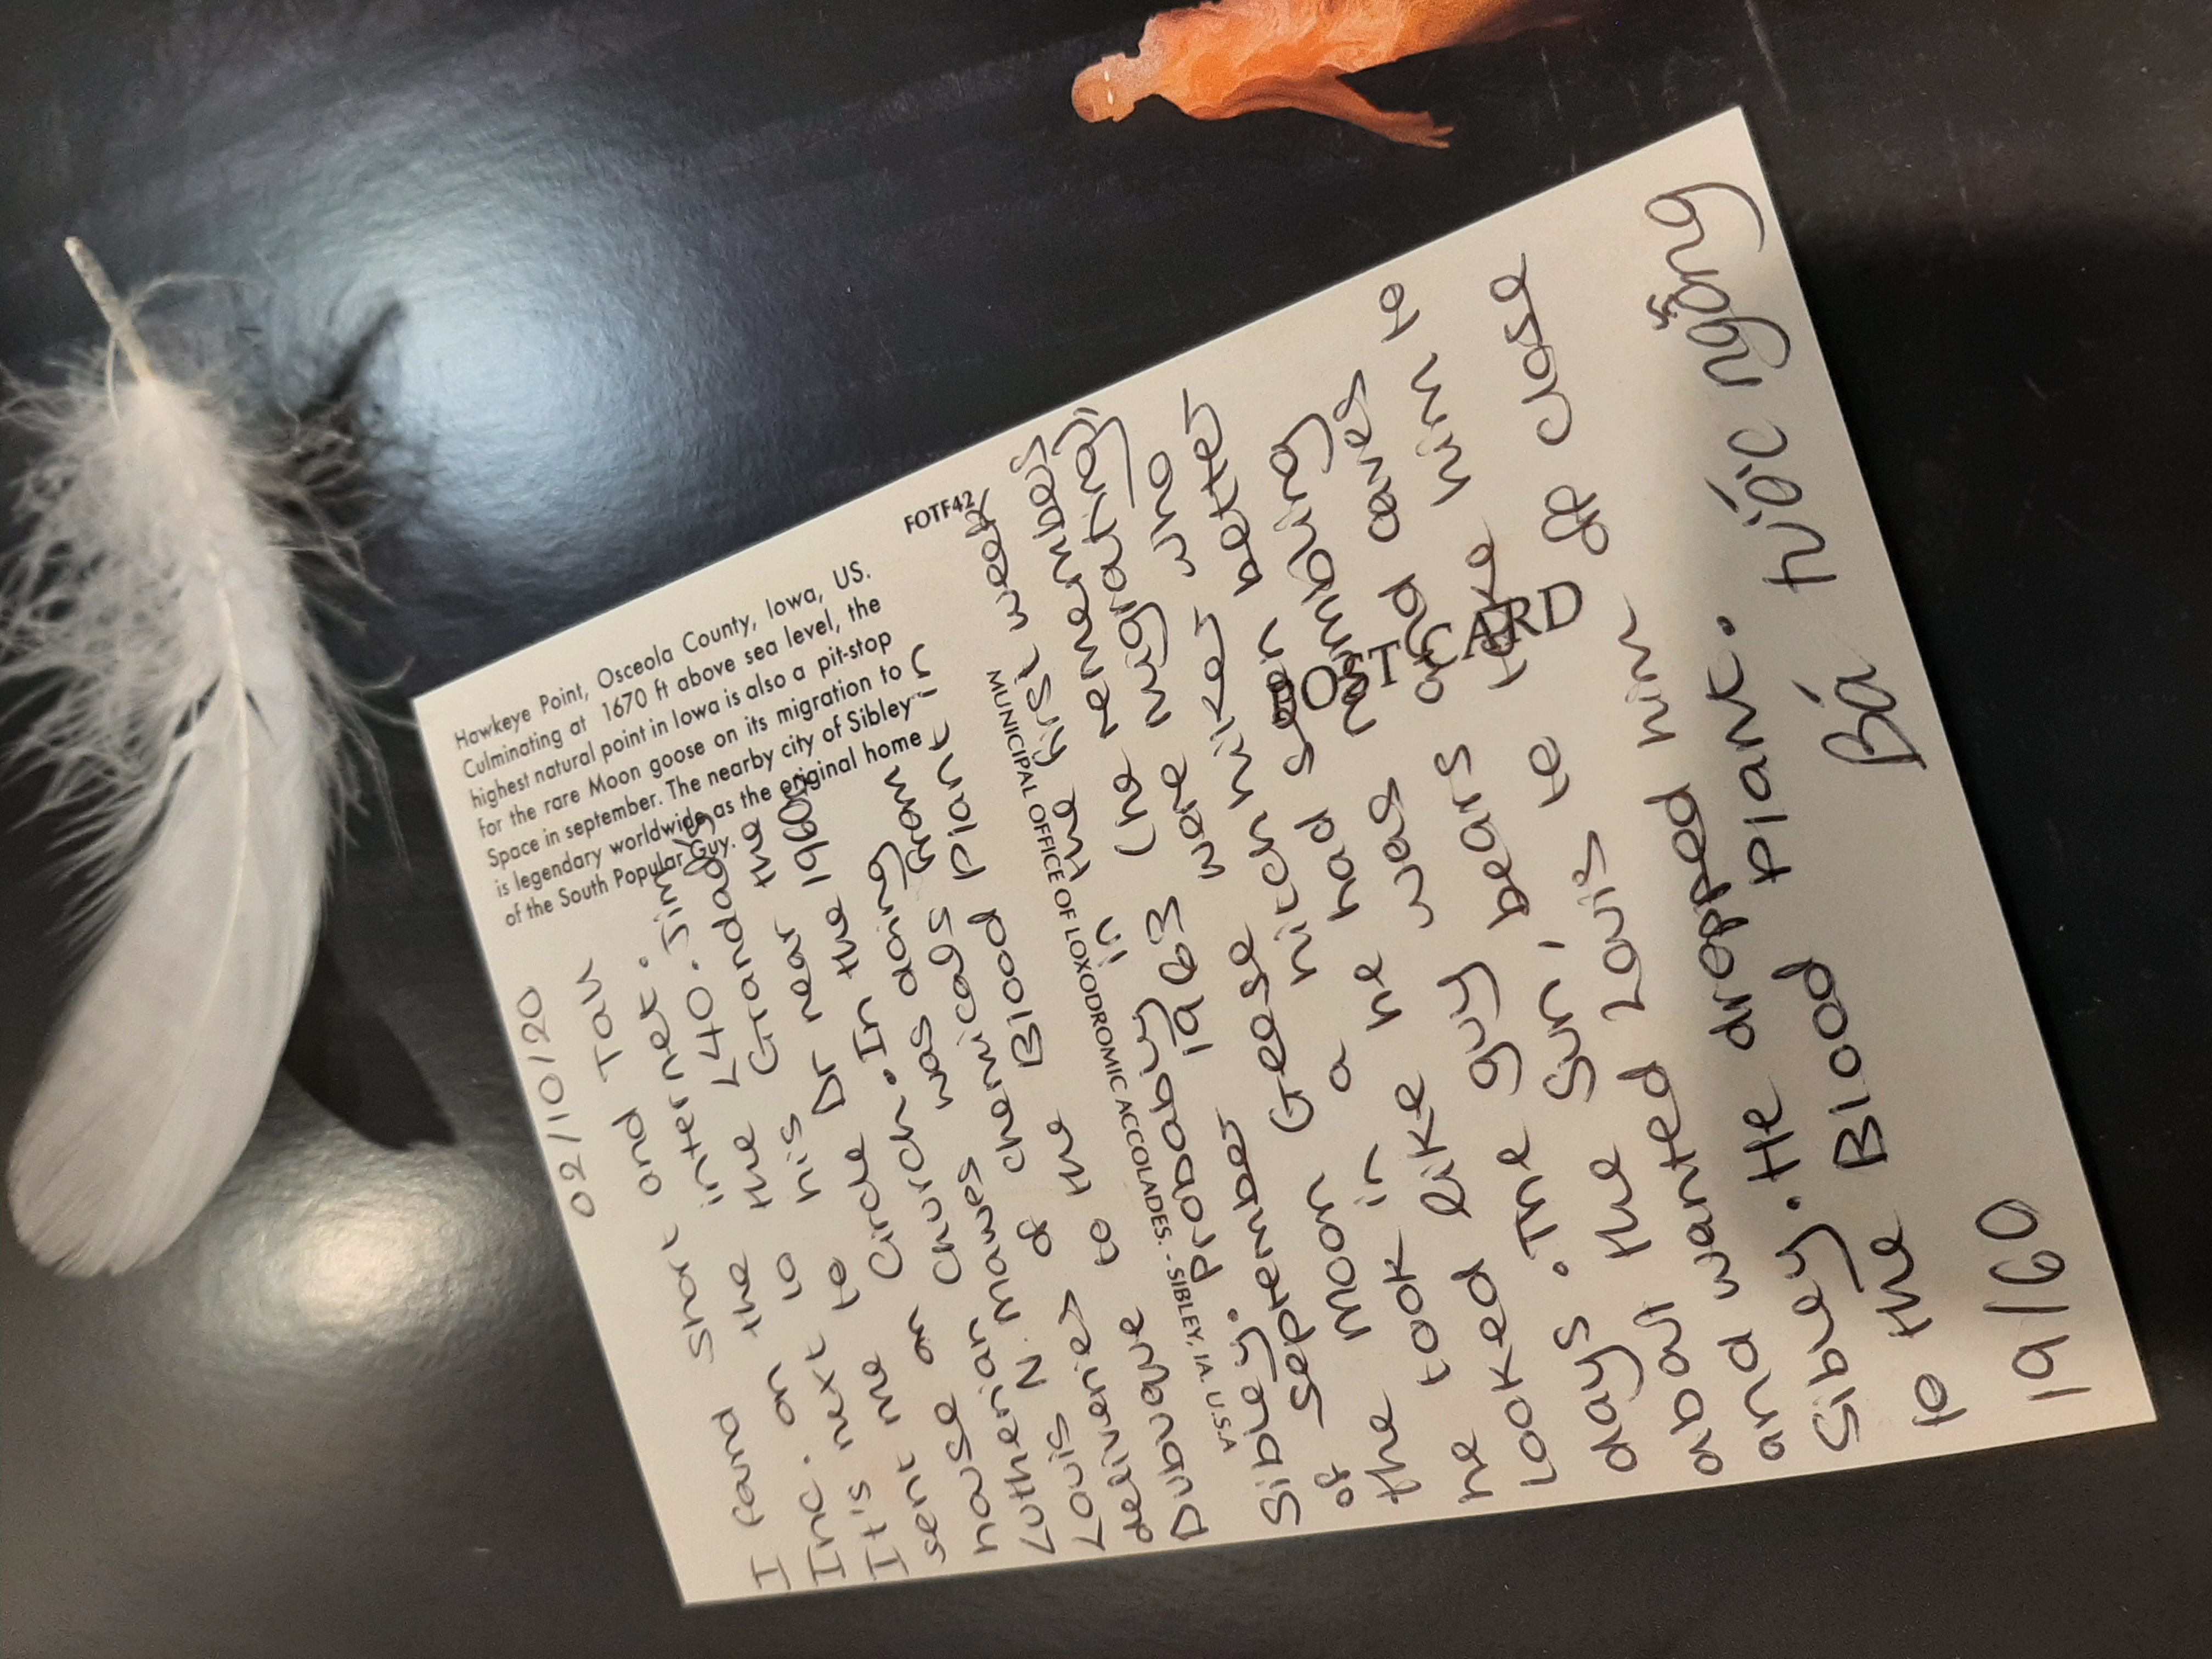 Hawkeye Point, Osceola County, Iowa, US.
Culminating at 1670 ft above sea level, the
highest natural point in Iowa is also a pit-stop
for the rare Moon goose on its migration to
Space in september. The nearby city of Sibley
is legendary worldwide as the original home
of the South Popular Guy.
FOTF42
POST CARD
MUNICIPAL OFFICE OF LOXODROMIC ACCOLADES. - SIBLEY, IA. U.S.A
02/10/20
I found Short and Tall
Inc. on the internet.
It's next to the L40. Jim
sent me to his Grandad's
house on Circle Dr near the
Lutherian Church. In the 1960s
Louis N. Mawes was doing
deliveries of chemicals from
Dubuque to the Blood Plant in
Sibley. Probably in the first week
of September 1963 (he remembers
the Moon Geese were migrating)
he took in a hitch hiker who
looked like he had seen better
days. The guy was mumbling
about the Sun, bears and caves
and wanted Louis to take him to
Sibley. He dropped him off close
to the Blood Plant.
19/60 Bá tước ngỗng